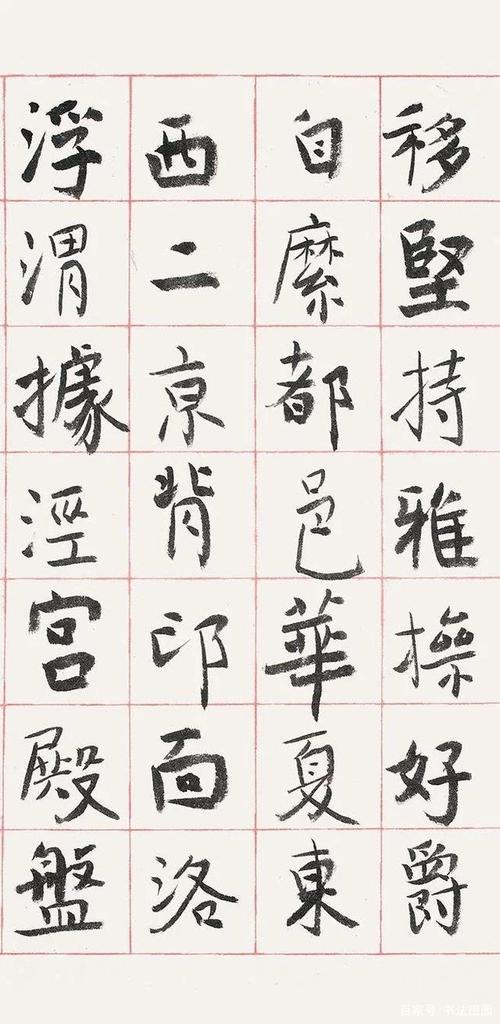 移堅持雅操好爵
自縻都邑華夏東
西二京背邙面洛
浮渭據涇宮殿盤
百家号/书法